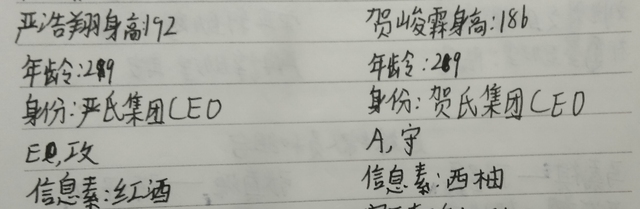 严浩翔身高192
年龄:29
身份:严氏集团CEO
E,攻
信息素:红酒
贺峻霖身高:186
年龄:29
身份:贺氏集团CEO
A,守
信息素:西柚